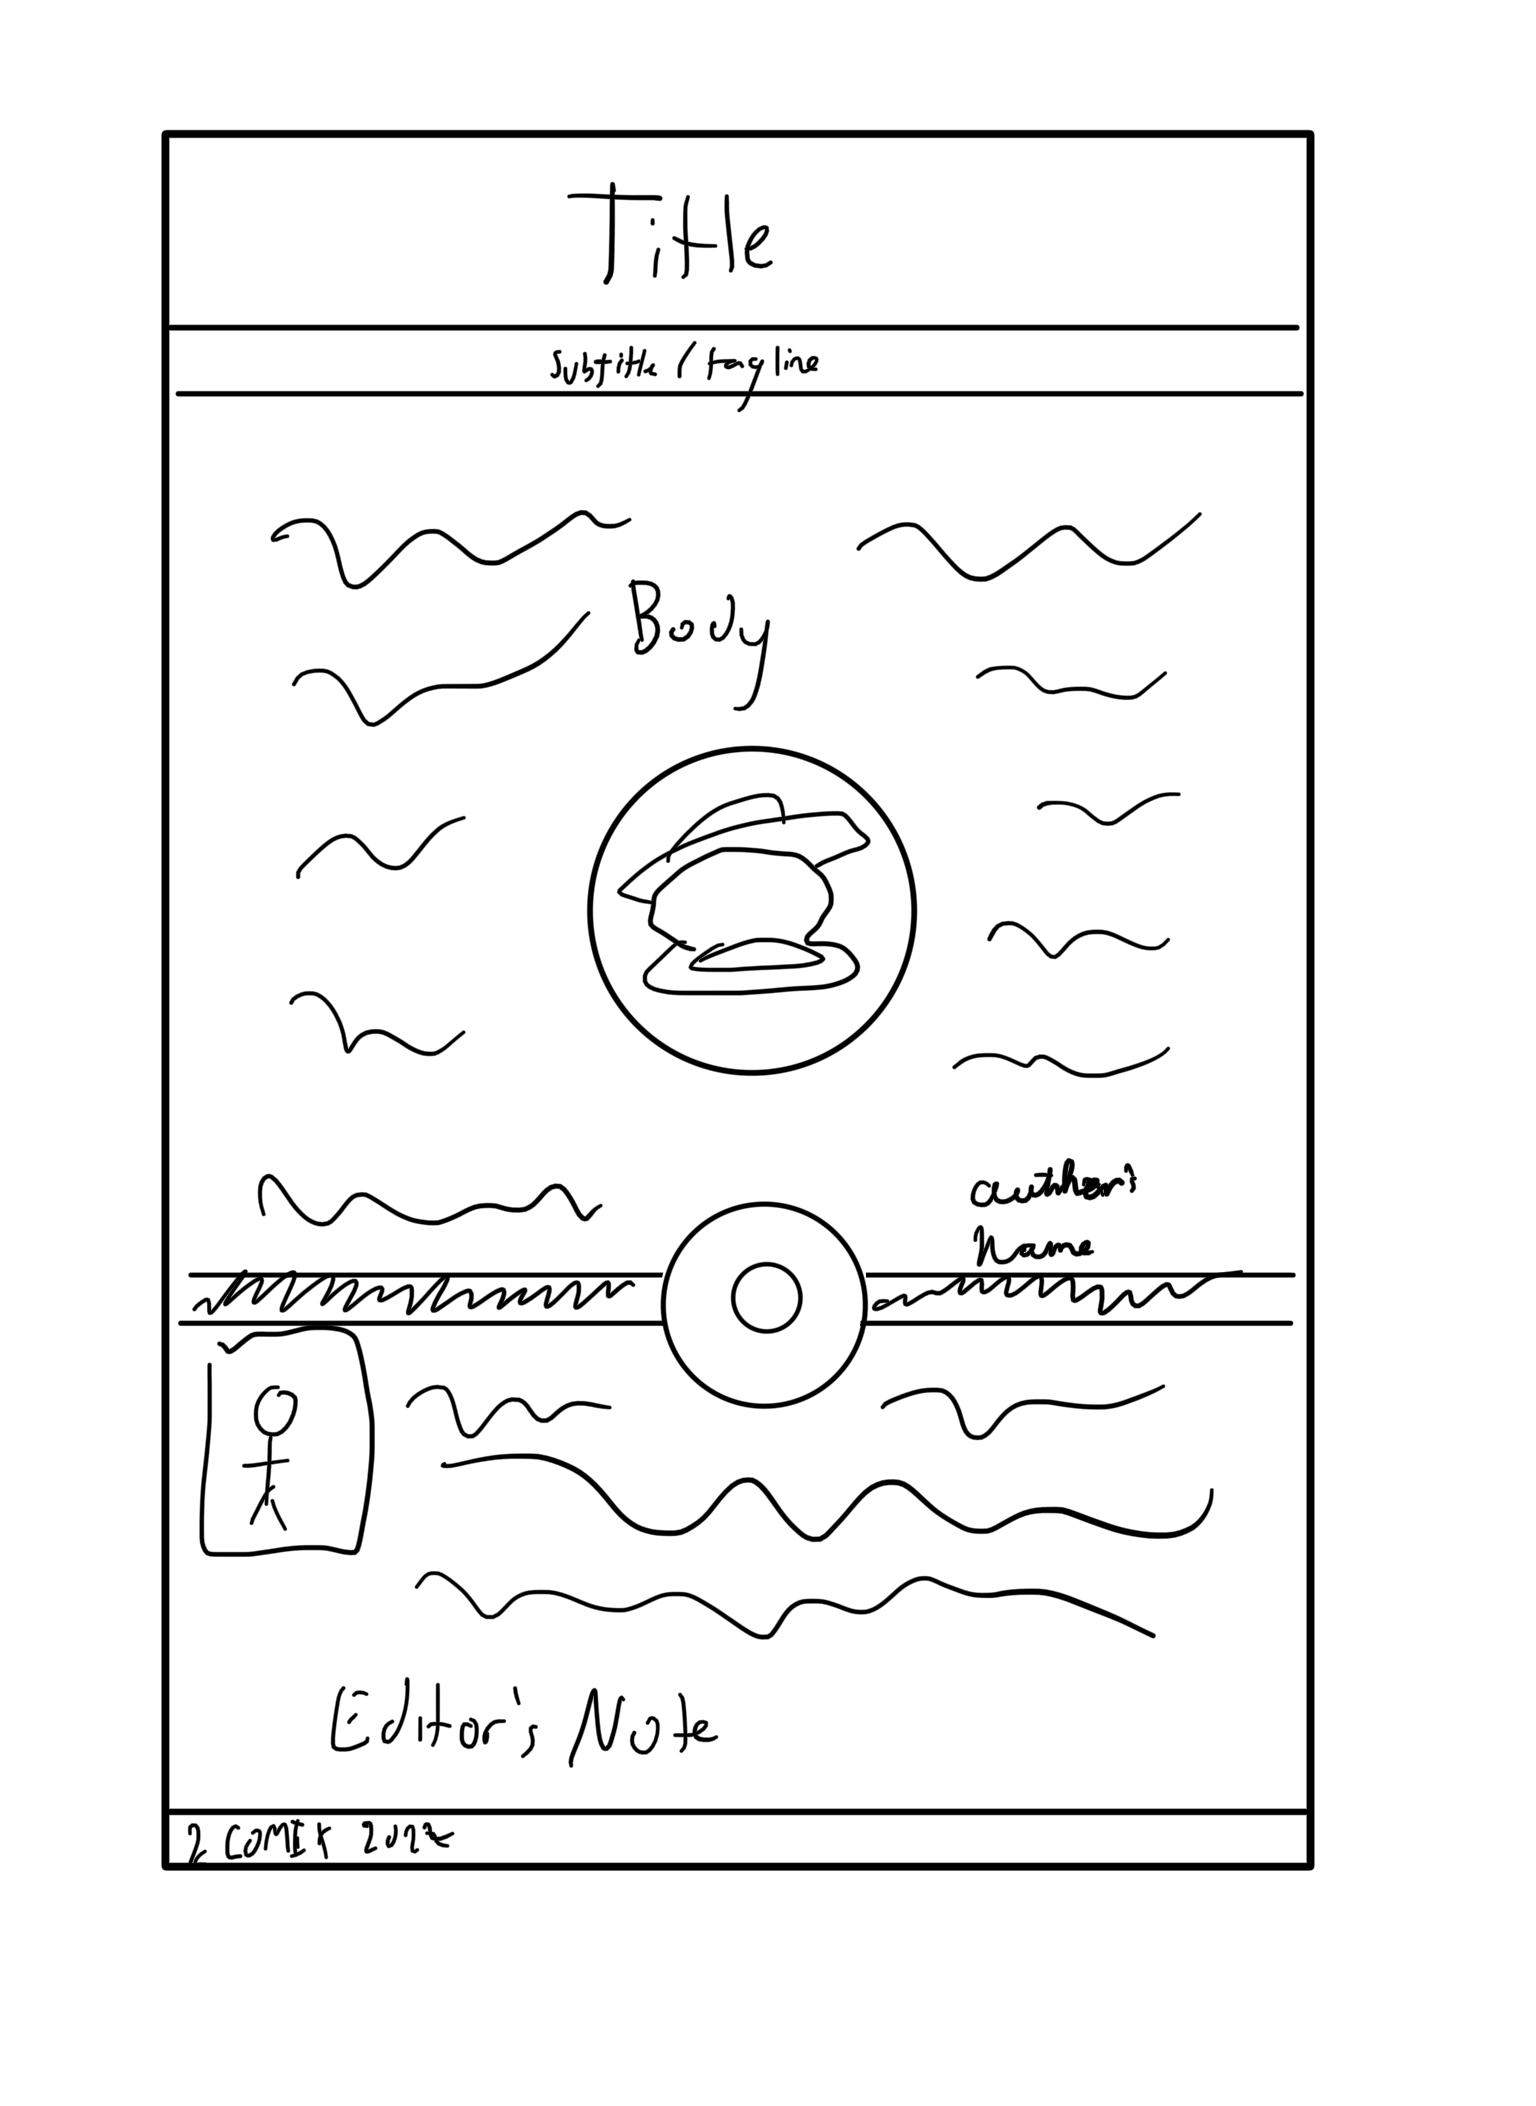 Title
Subtitle / tagline
Body
author's
Name
Editor's Note
COMIX